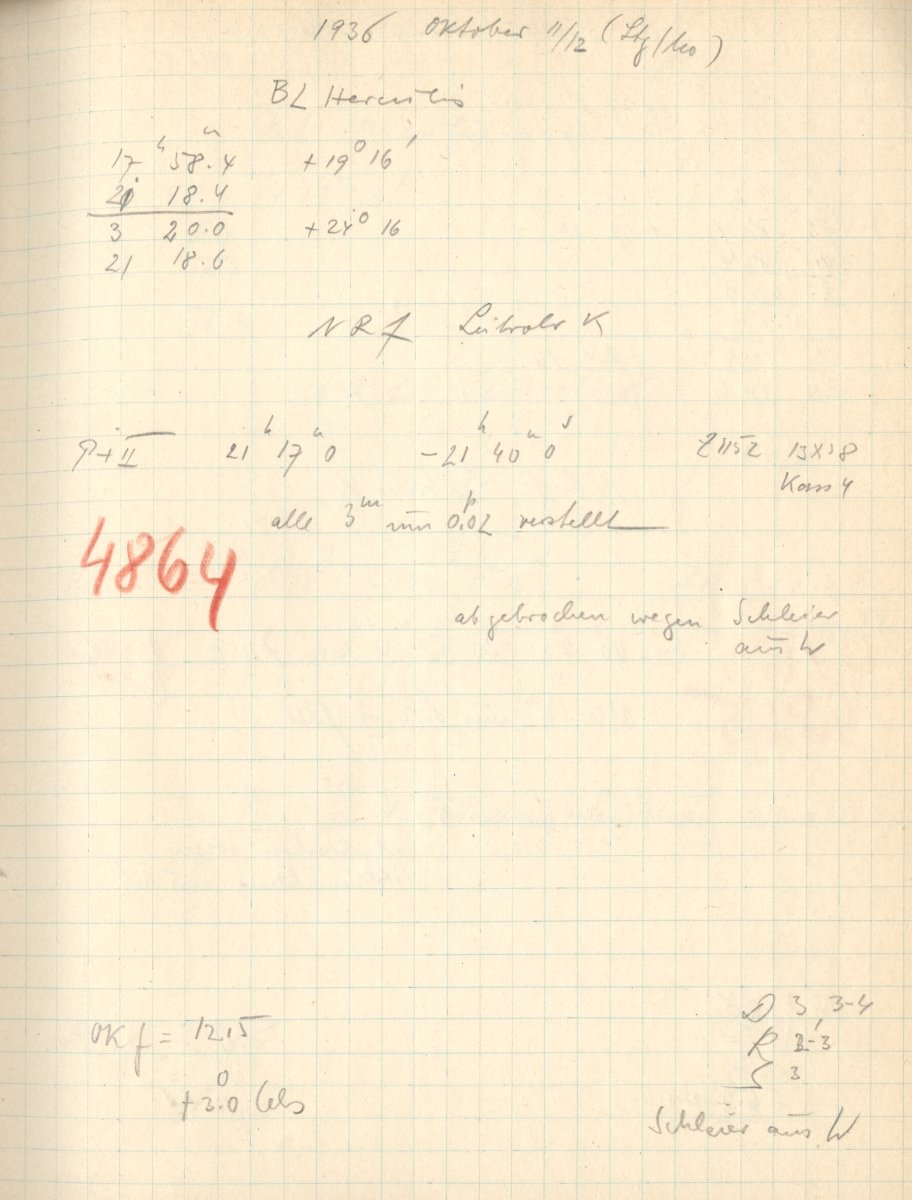 1936 Oktober 11/12 (Stg/Ko)
BL Herculis
17h 58m.4 +19° 16'
21 18.4
3 20.0 +24° 16
21 18.6
NRf Leitrohr K
P+II 21h 17m 0 -21h 40m 0s Z1152 13X18
Kass 4
alle 3m um 0p.02 verstellt
4864
abgebrochen wegen Schleier
aus W
OK f = 12.15
+3°.0 Cels
D 3, 3-4
R 2-3
S 3
Schleier aus W